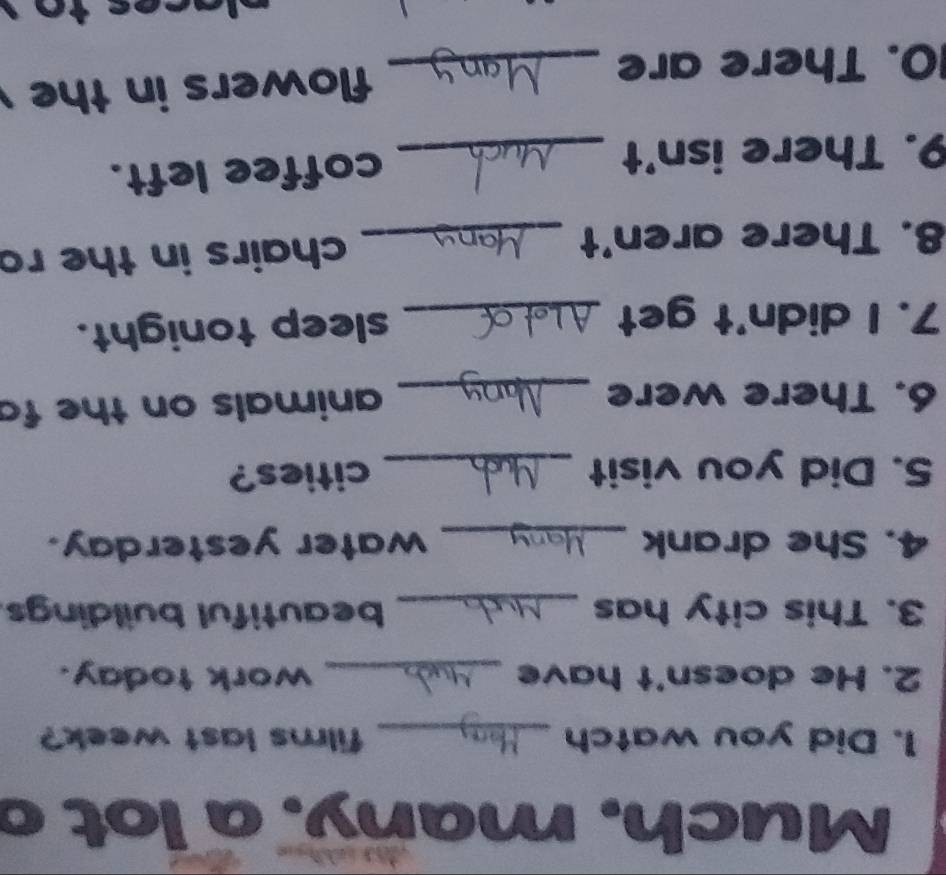 Much, many, a lot o
1. Did you watch Many films last week?
2. He doesn't have Much work today.
3. This city has Much beautiful buildings.
4. She drank Many water yesterday.
5. Did you visit Much cities?
6. There were Many animals on the fa
7. I didn't get A Lot Of sleep tonight.
8. There aren't Many chairs in the ro
9. There isn't Much coffee left.
10. There are Many flowers in the
places to